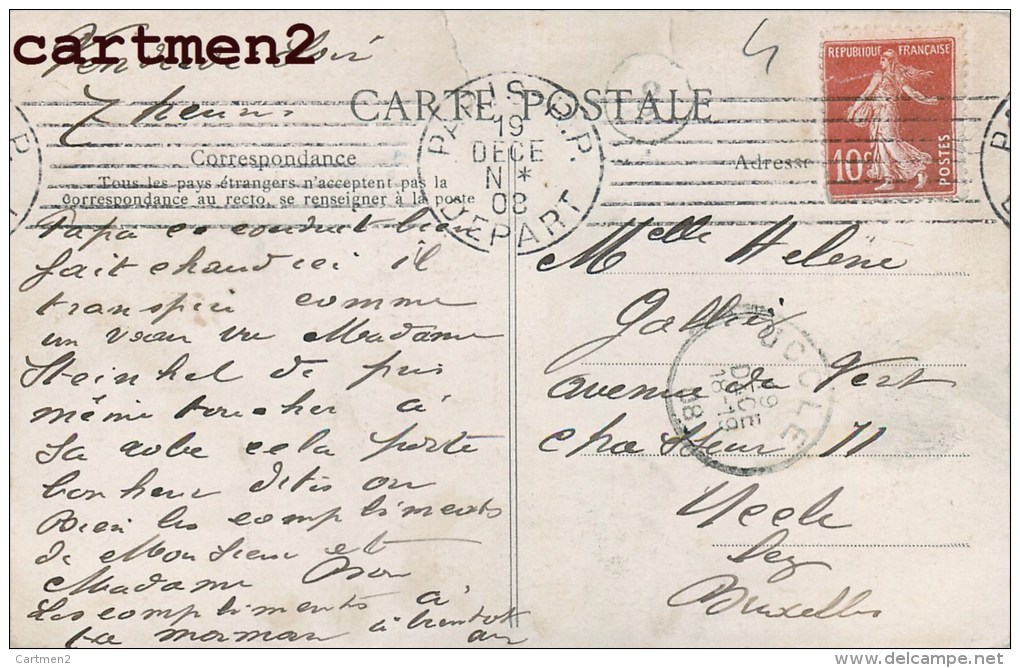 cartmen2
Vendredi Soir
7 heures
CARTE POSTALE
Correspondance
Adresse
Tous les pays étrangers n'acceptent pas la
correspondance au recto, se renseigner à la poste
PARIS R.P.
19
DECE
N *
08
DEPART
REPUBLIQUE FRANÇAISE
10c
POSTES
Papa ce conduit bien
fait chaud ici il
transpire comme
un veau vu Madame
Steinhel de pres
même toucher à
sa robe cela porte
bonheur
Bien les compliments
de Monsieur et
Madame
Les compliments à
ta maman à bientot
Melle Helène
avenue du Vert
chasseur 11
Uccle
lez
Bruxelles
UCCLE
19
DECE
18-19
08
Cartmen2
delcampe.net